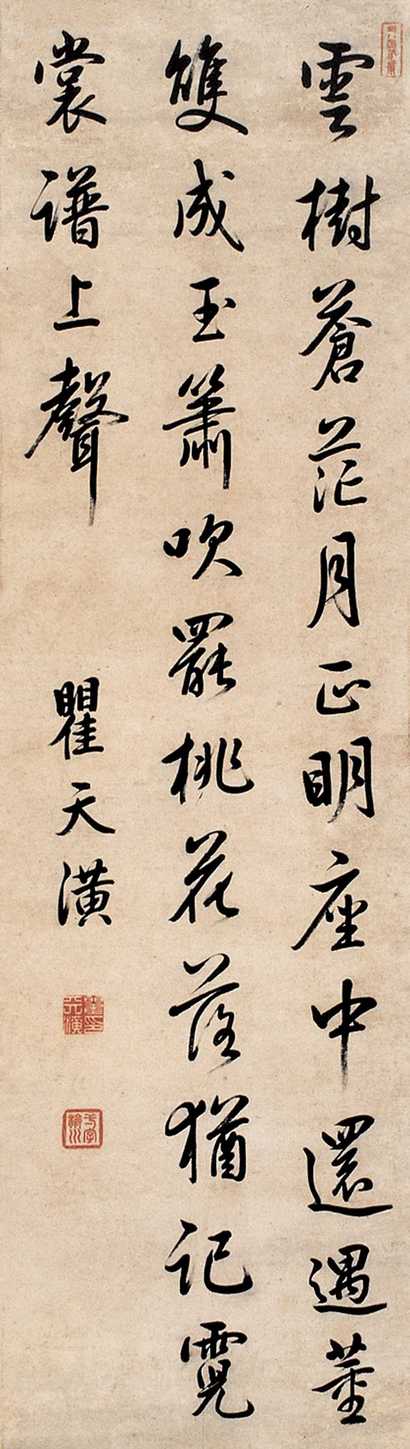 雲樹蒼茫月正明座中還遇董
雙成玉簫吹罷桃花落猶記霓
裳譜上聲
瞿天潢